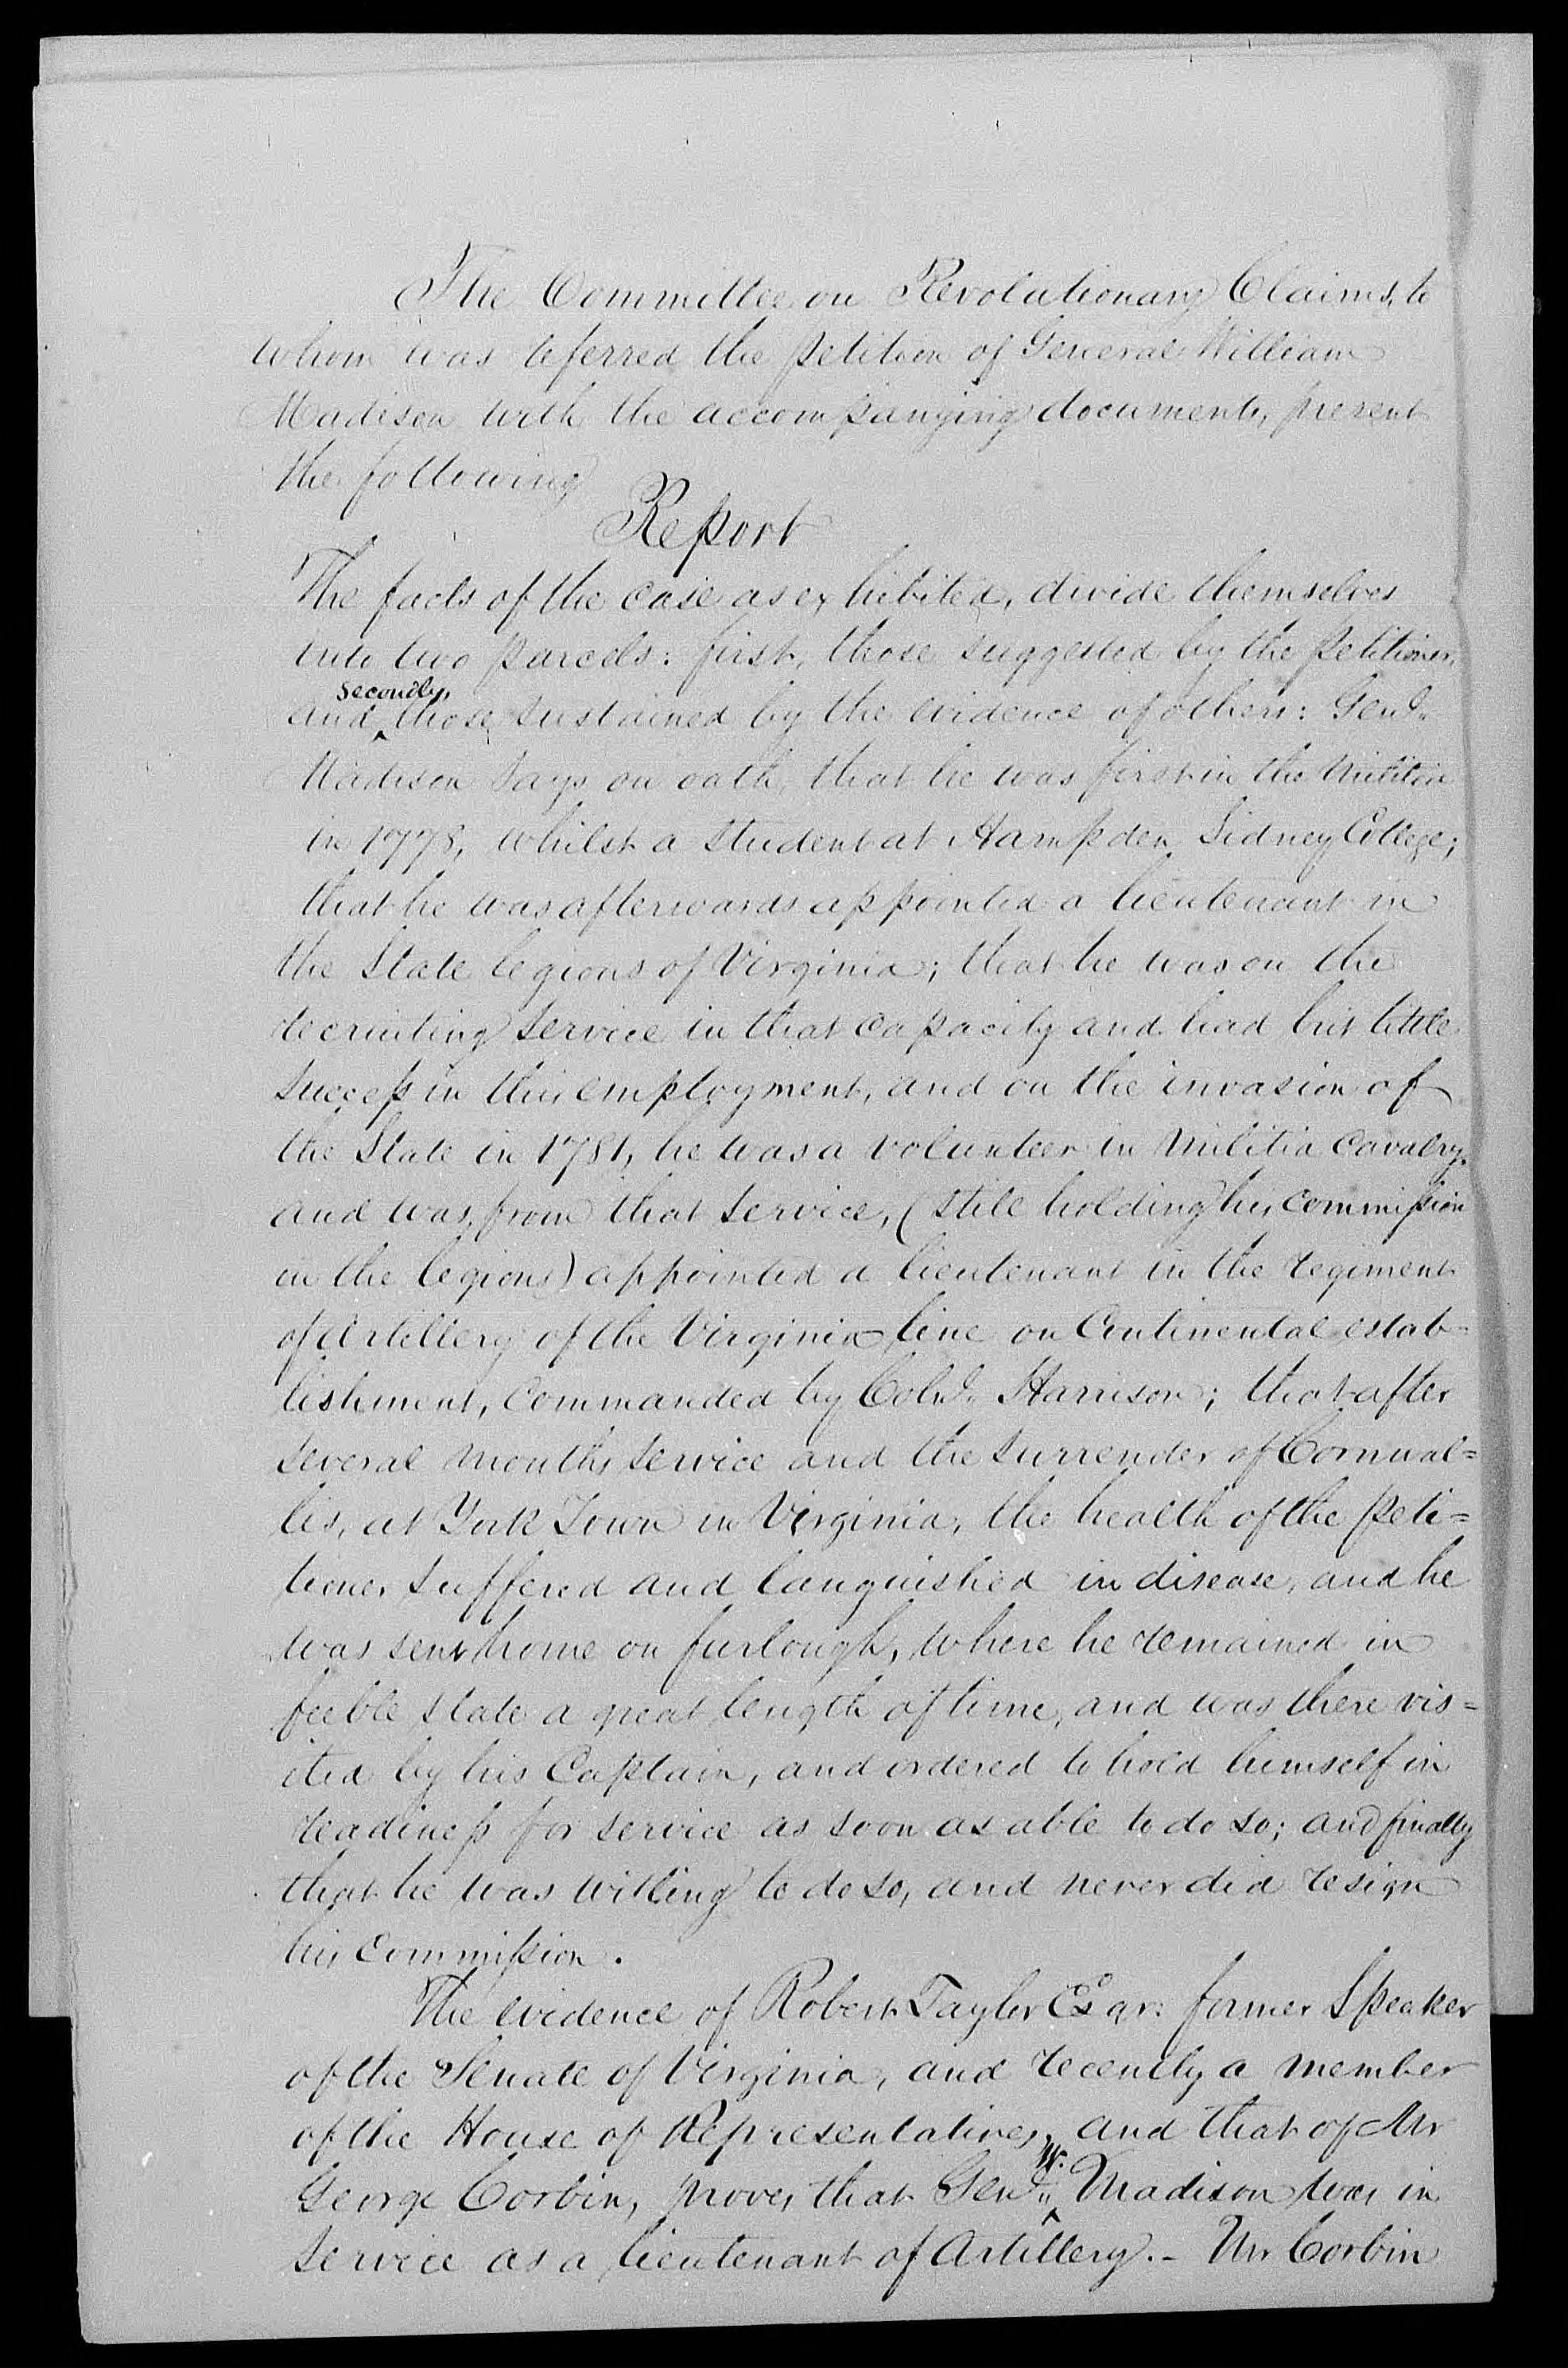 The Committee on Revolutionary Claims, to
whom was referred the petition of General William
Madison with the accompanying documents, present
the following
Report
The facts of the case as exhibited, divide themselves
into two parcels: first, those suggested by the petitioner,
and secondly, those sustained by the evidence of others: Genl.
Madison Says on oath, that he was first in the Militia
in 1778, whilst a Student at Hampden Sidney College;
that he was afterwards appointed a lieutenant in
the State legions of Virginia; that he was on the
recruiting Service in that capacity and had but little
success in this employment, and on the invasion of
the State in 1781, he was a volunteer in Militia Cavalry,
and was, from that Service, (still holding his commission
in the legions) appointed a lieutenant in the regiment
of Artillery of the Virginia line on Continental estab=
lishment, Commanded by Coln. Harrison; that after
Several months service and the surrender of Cornwal=
lis, at York Town in Virginia, the health of the peti=
tioner suffered and languished in disease, and he
was sent home on furlough, where he remained in
feeble state a great length of time, and was there vis=
ited by his Captain, and ordered to hold himself in
readiness for service as soon as able to do so; and finally
that he was willing to do so, and never did resign
his Commission.
The evidence of Robert Taylor Esqr: former Speaker
of the Senate of Virginia, and recently a member
of the House of Representatives, and that of Mr
George Corbin, proves that Genl. W. Madison was in
Service as a lieutenant of Artillery.- Mr Corbin